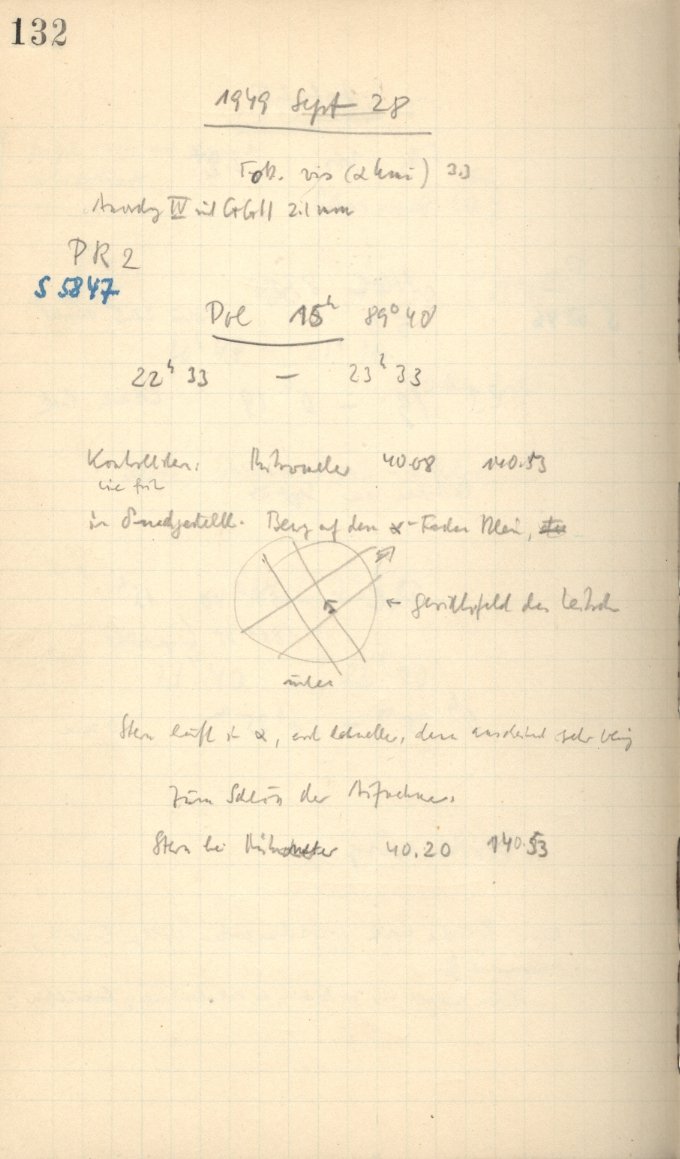 132
1949 Sept 28
Fok. vis (α Umi) 3.3
IV mit 2.1 mm
PR 2
S 5847
Pol 15ʰ 89° 40'
22ʰ 33 — 23ʰ 33
Kontrollstern: Mikrometer 40.08 140.53
wie früh
in δ nachgestellt. auf den α-Faden
← Gesichtsfeld des Leitrohr
unten
Stern läuft in α, erst schneller, dann anscheinend sehr wenig
Zum Schluss der Aufnahme:
Stern bei Mikrometer 40.20 140.53